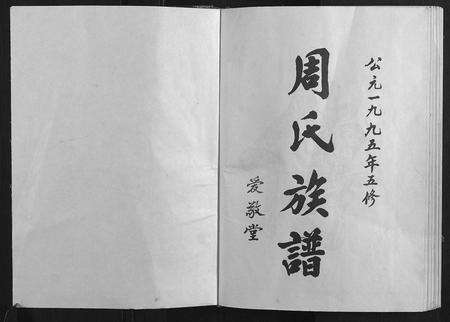 公元一九九五年五修
周氏族譜
爱敬堂